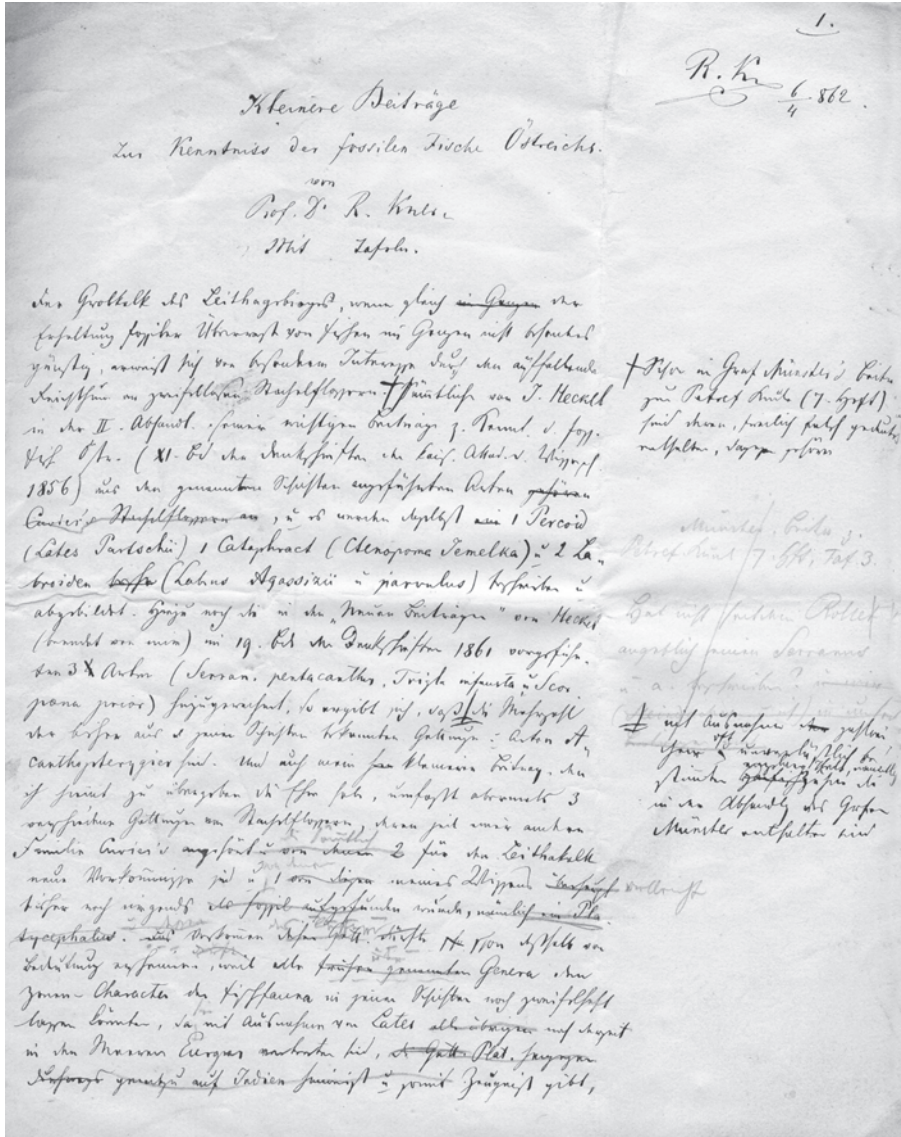 1.
R. Kn
6/4 862.
Kleinere Beiträge
Zur Kenntniss der fossilen Fische Östreichs.
von
Prof. Dr R. Kner
Mit Tafeln.
Der Grobkalk des Leithagebirges, wenn gleich im Ganzen der
Erhaltung fossiler Überreste von Fischen im Ganzen nicht besonders
günstig, erweist sich von besonderem Interesse durch den auffallenden
Reichthum an zweifellosen Stachelflossern † Sämtliche von J. Heckel
in der II. Abhandl. seiner wichtigen Beiträge z. Kennt. d. foss.
Fisch Östr. (XI. Bd der Denkschriften der kais. Akad. d. Wissensch.
1856) aus den genannten Schichten angeführten Arten gehören
Cuvier's Stachelflossern an, u es werden daselbst ein 1 Percoid
(Lates Partschii) 1 Cataphract (Ctenopoma Jemelka) u 2 La-
broiden (Labrus Agassizii u parvulus) beschrieben u
abgebildet. Hiezu noch die in den „Neuen Beiträgen" von Heckel
(beendet von mir) im 19. Bd der Denkschriften 1861 vorgeführ-
ten 3 Arten (Serran. pentacanthus, Trigla infausta u Scor-
pæna prior) hinzugerechnet, so ergibt sich, daß ‡ die Mehrzahl
der bisher aus jenen Schichten bekannten Gattungen u Arten A-
canthopterygier sind. Und auch mein kleinerer Beitrag, den
ich hiemit zu übergeben die Ehre habe, umfaßt abermals 3
verschiedene Gattungen von Stachelflossern, deren jede einer andern
Familie Cuvier's angehört u von denen 2 für den Leithakalk
neue Vorkommnisse sind u 1 von diesen meines Wissens überhaupt vielleicht
bisher noch nirgends als fossil aufgefunden wurde, nämlich ein Pla-
tycephalus. Das Vorkommen dieser Gatt. dürfte schon deßhalb von
Bedeutung erscheinen, weil alle früher genannten Genera den
Zonen-Character der Fischfauna in jenen Schichten noch zweifelhaft
lassen könnten, da mit Ausnahme von Lates alle übrigen noch derzeit
in den Meeren Europas vertreten sind, d Gatt. Plat. hingegen
durchwegs geradezu auf Indien hinweist u somit Zeugniß gibt,
† Schon in Graf Münster's Beitr.
zur Petref. Kunde (7. Heft)
sind deren, freilich falsch gedeutet
enthalten, dazu gehören
Münster. Beitr. z.
Petref. Kund 7. Hft, Taf. 3.
Hat nicht
angeblich einen Serranus
u a. beschrieben?
‡ mit Ausnahme der zahlrei-
chen oft unverläßlich be-
stimten Zähne die
in der Abhandlg des Grafen
Münster enthalten sind